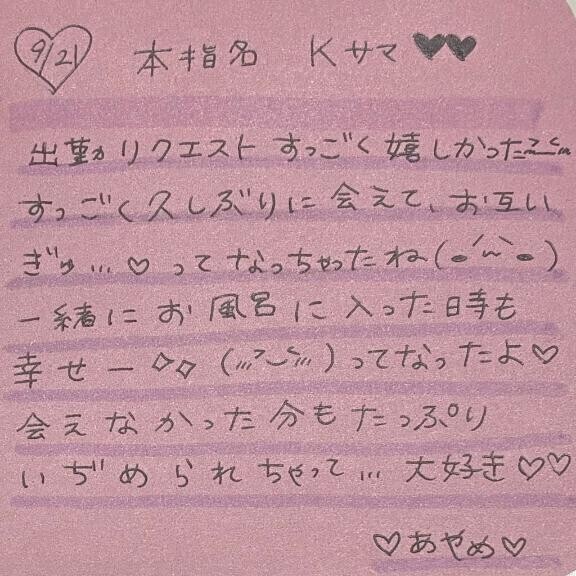 9/21 本指名 Kサマ♥♥
出勤リクエスト すっごく嬉しかった
すっごく久しぶりに会えて、お互い
ぎゅ…♡ってなっちゃったね(。´~`。)
一緒にお風呂に入った時も
幸せー✧✧(〃⌣〃)ってなったよ♡
会えなかった分もたっぷり
いぢめられちゃって…大好き♡♡
♡あやめ♡